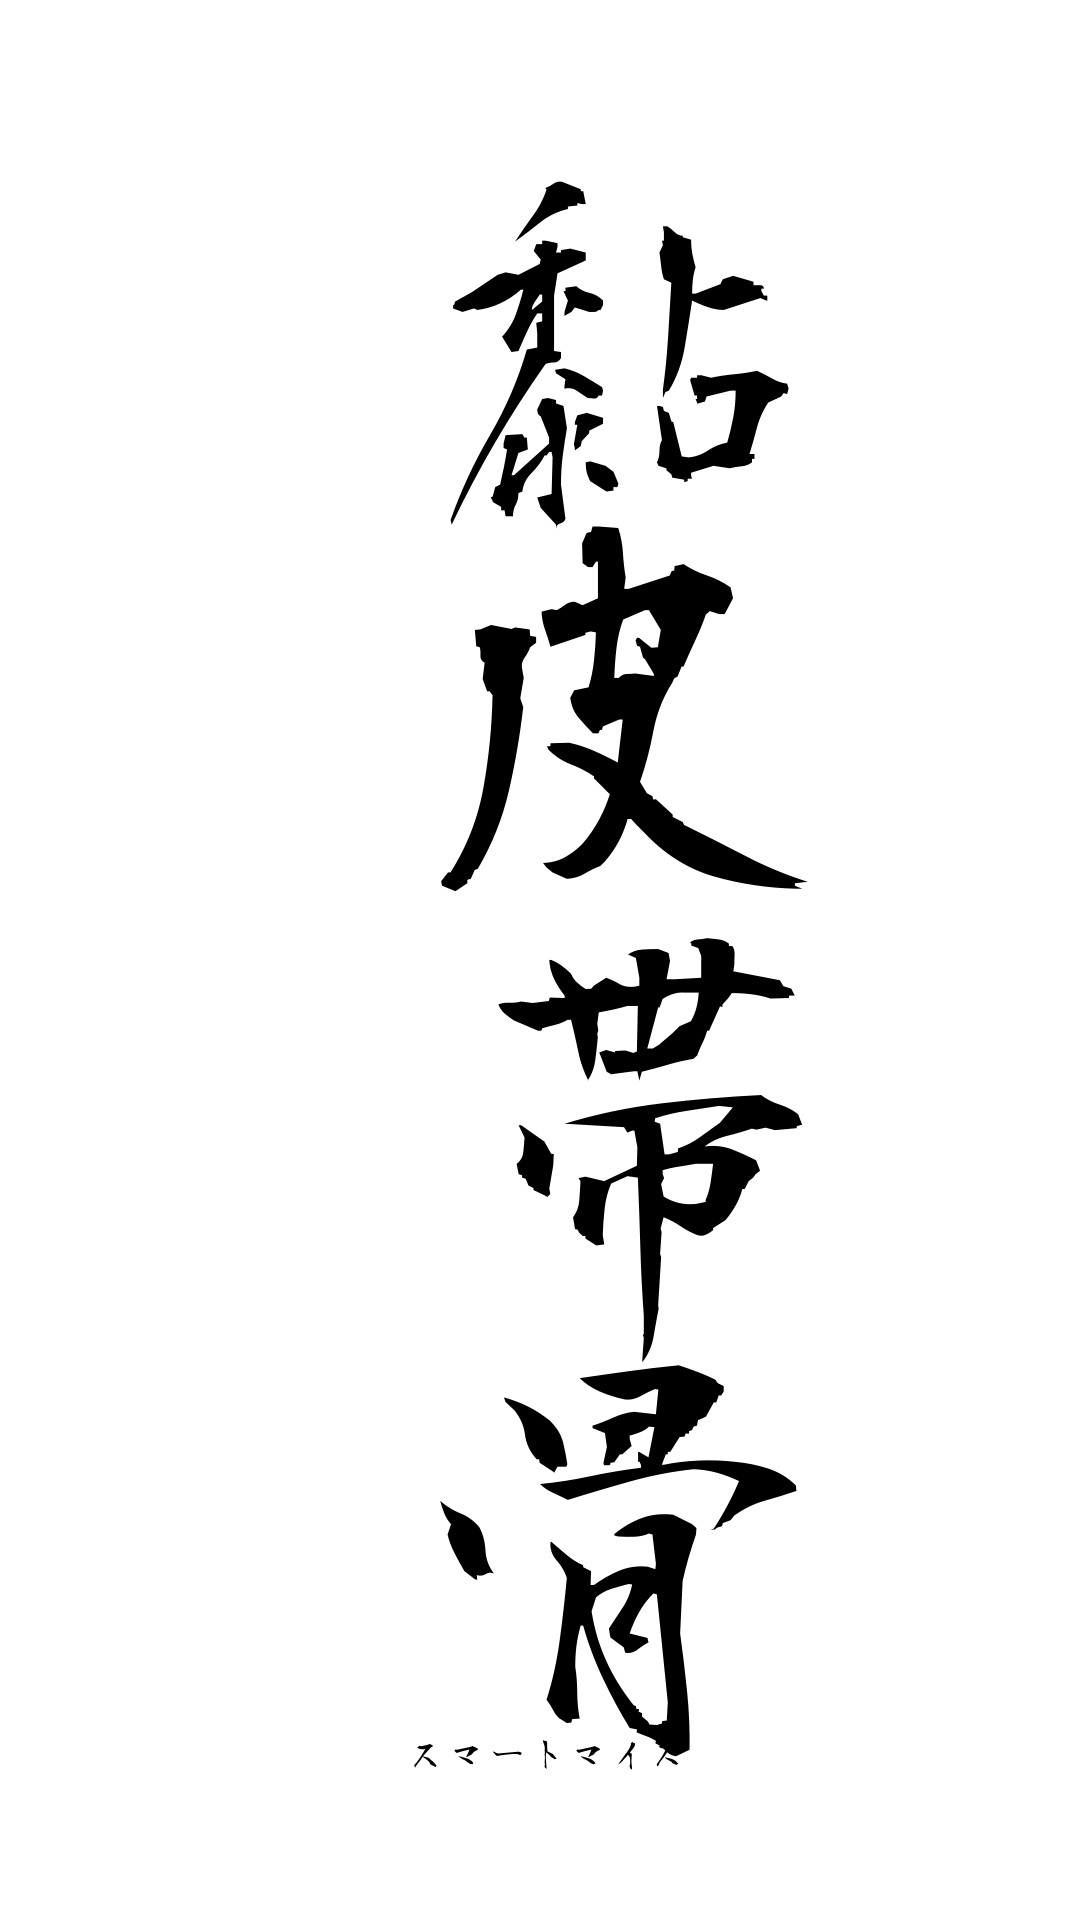 黏皮帶骨
スマートマイス